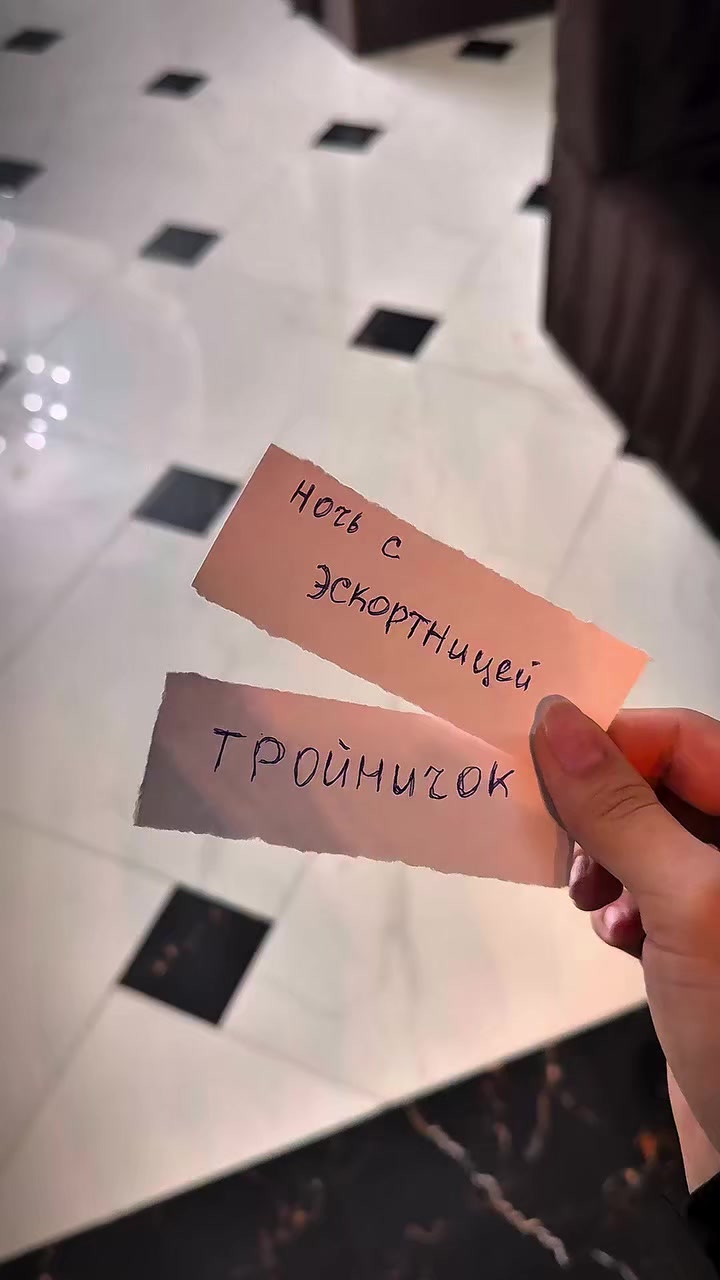 Ночь с
эскортницей
ТРОЙНИЧОК